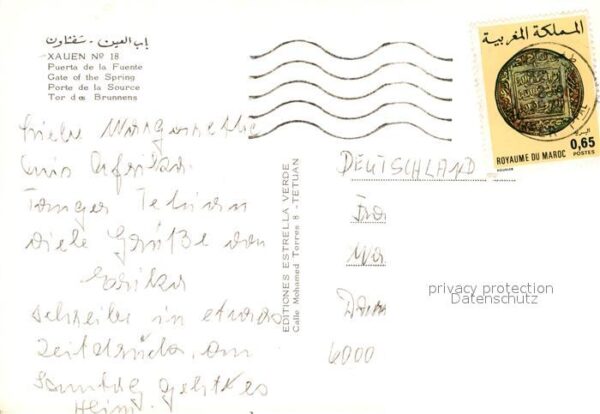 باب العين - شفشاون
XAUEN Nº 18
Puerta de la Fuente
Gate of the Spring
Porte de la Source
Tor des Brunnens
Liebe
aus Afrika.
Tanger Tetuan
viele Grüße von
Erika
schreibe in etwas
Zeitdruck, am
Samstag geht es
Heim.
EDITIONES ESTRELLA VERDE
Calle Mohamed Torres 8 - TETUAN
المملكة المغربية
0,65
ROYAUME DU MAROC POSTES
DEUTSCHLAND
Fra
6000
privacy protection
Datenschutz